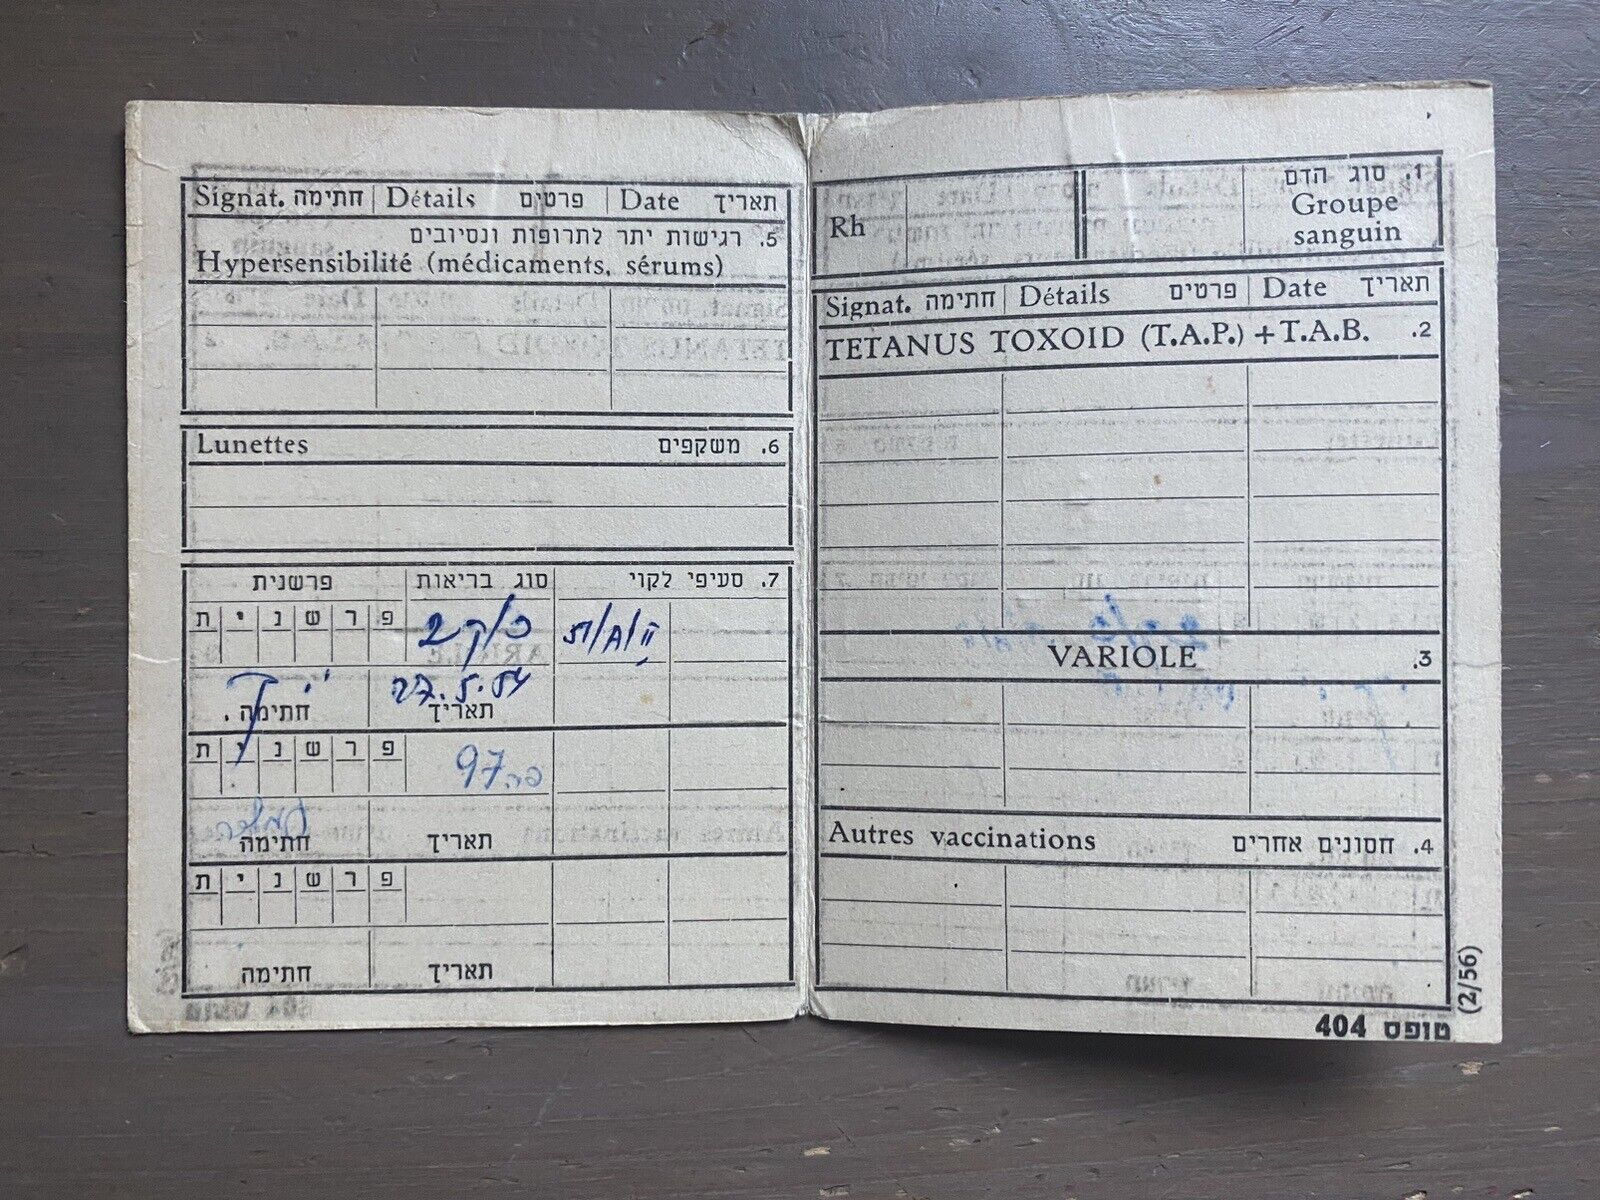 1. סוג הדם
Groupe sanguin
Rh
תאריך Date פרטים Détails חתימה Signat.
2. TETANUS TOXOID (T.A.P.) + T.A.B.
3. VARIOLE
4. חסונים אחרים Autres vaccinations
(2/56)
טופס 404
תאריך Date פרטים Détails חתימה Signat.
5. רגישות יתר לתרופות ונסיובים
Hypersensibilité (médicaments, sérums)
6. משקפים Lunettes
7. סעיפי לקוי סוג בריאות פרשנית
פ ר ש נ י ת
27.5.54
תאריך חתימה.
פ ר ש נ י ת
97
תאריך חתימה
פ ר ש נ י ת
תאריך חתימה